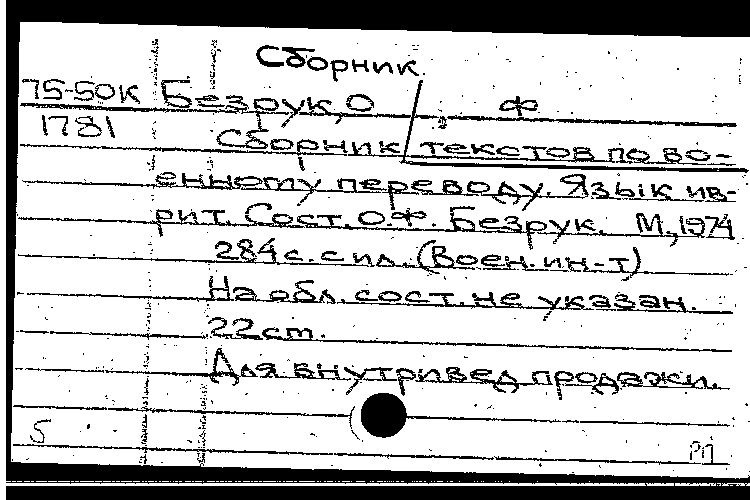 Сборник
75-50К Безрук, О Ф
1781 Сборник текстов по во-
енному переводу. Язык ив-
рит. Сост. О.Ф. Безрук. М., 1974
284 с. с ил. (Воен. ин-т)
На обл. сост. не указан.
22 cm.
Для внутривед продажи.
5